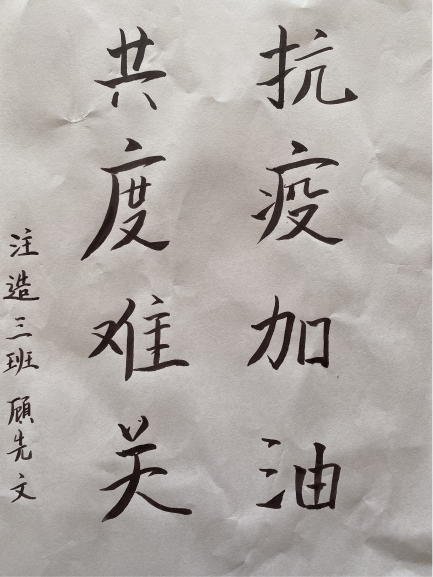 抗疫加油
共度难关
注造三班 顾先文